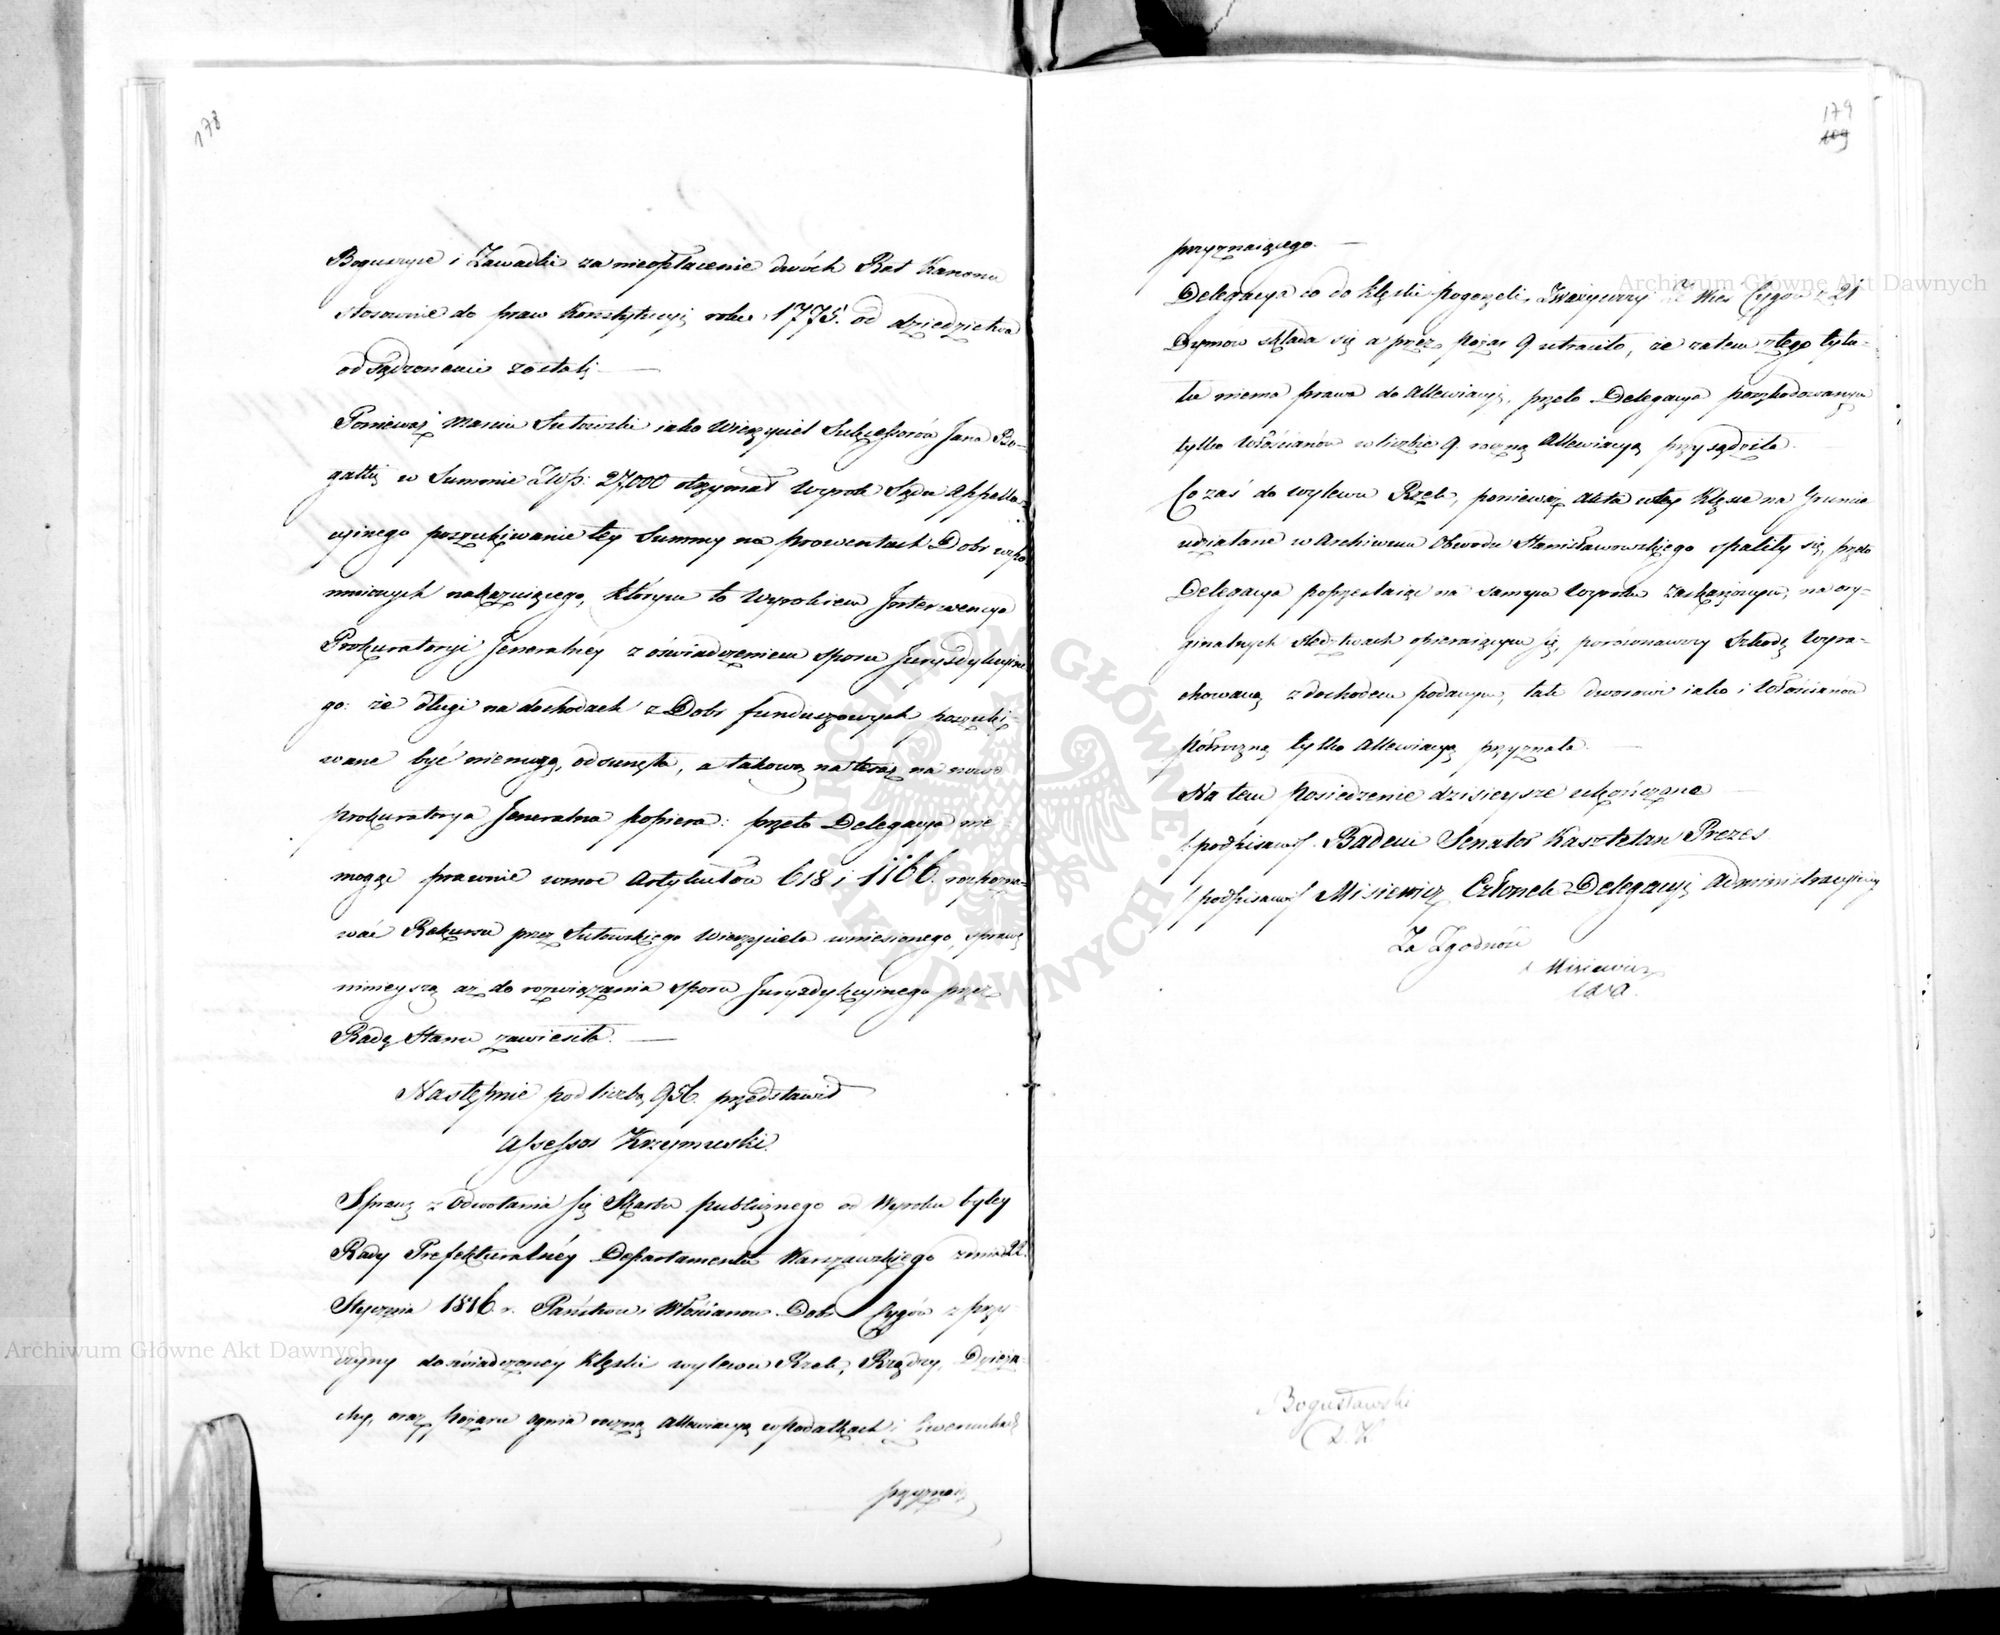 178
Boguszyce i Zawadki za nieopłacenie dwóch Rat Kanonu
stosownie do praw Konstytucyi roku 1775. od dziedzictwa
odsądzonemi zostali
Ponieważ Marcin Sutowski iako Wierzyciel Sukcessorów Jana Ro-
galli w Summie ZłP: 27,000 otrzymał Wyrok Sądu Appella-
cyinego poszukiwanie tey Summy na prowentach Dobr wspo
mnionych nakazuiącego, którym to Wyrokiem Interwencya
Prokuratoryi Jeneralnéy z oświadczeniem sporu Juryzdykcyine
go: że długi na dochodach z Dobr funduszowych poszuki-
wane być niemogą, odsunęła, a takową na teraz na nowo
Prokuratorya Jeneralna popiera: przeto Delegacya nie
mogąc prawnie wmoc Artykułów 618 i 1166. rozpozna-
wać Rekursu przez Sutowskiego Wierzyciela wniesionego, sprawę
ninieyszą aż do rozwiązania sporu Juryzdykcyinego przez
Radę Stanu zawiesiła.
Następnie pod liczbą 956. przedstawił
Assessor Krzymuski
Sprawę z Odwołania się Skarbu publicznego od Wyroku byłey
Rady Prefekturalnéy Departamentu Warszawskiego z dnia 22.
Stycznia 1816. r. Państwu i Włościanom Dobr Cygów z przy-
czyny doświadczonéy klęski wylewu Rzek,
chy, oraz pożaru ognia roczną Allewiacyą w podatkach i Liwerunkach
przyznai
179
109
przyznaiącego.
Delegacya co do klęski pogorzeli, Zważywszy Że Wieś Cygów z 21
Dymów składa się a przez pożar 9 utraciła, że zatem z tego tytu-
łu niema prawa do Allewiacyi, przeto Delegacya poszkodowanym
tylko Włościanom w liczbie 9. roczną Allewiacyą przysądziła.
Co zaś do wylewu Rzek, ponieważ Akta w tey klęsce na Gruncie
udziałane w Archiwum Obwodu Stanisławowskiego spaliły się, przeto
Delegacya poprzestaiąc na samym Wyroku Zaskarżonym, na ory-
ginalnych śledztwach opieraiącym się, porównawszy Szkodę Wyra-
chowaną z dochodem podanym, tak dworowi iako i Włościanom
półroczną tylko Allewiacyą przyznała.
Na tem Posiedzenie dzisieysze ukończono
/podpisano/ Badeni Senator Kasztelan Prezes
/podpisano/ Misiewicz Członek Delegacyi Administracyiney
Za Zgodność
Misiewicz
Bogusławski